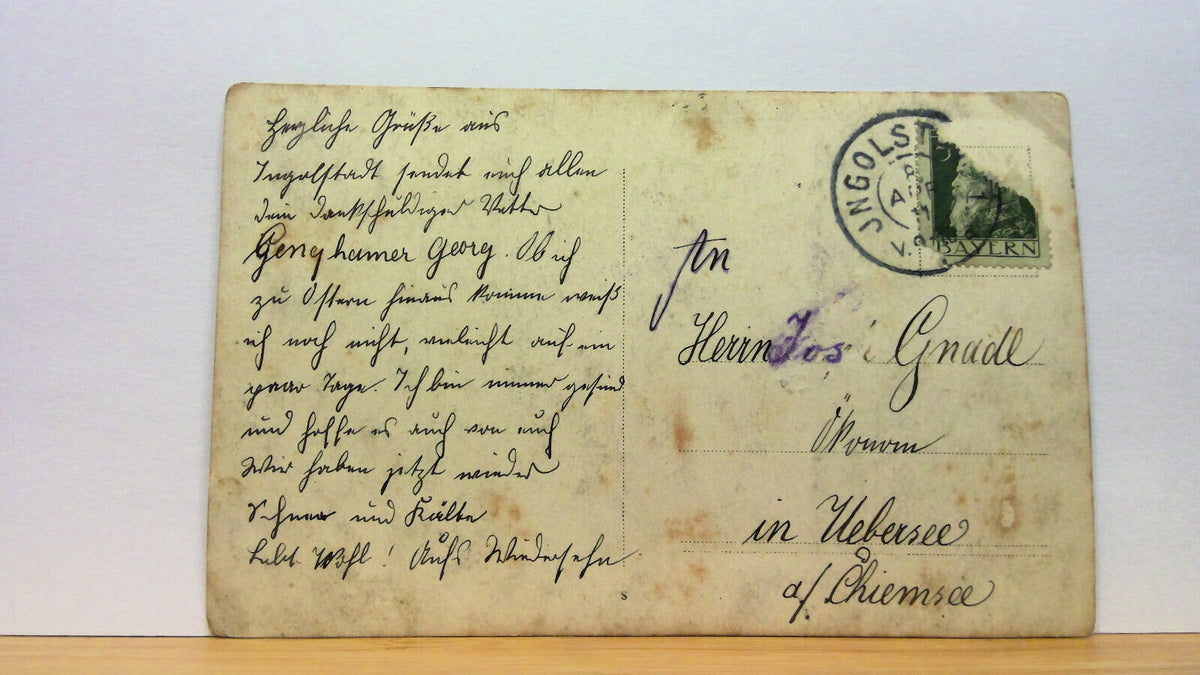 Herzliche Grüße aus
Ingolstadt sendet euch allen
dein dankschuldiger Vetter
Genghamer Georg. Ob ich
zu Ostern hinaus komme weiß
ich noch nicht, vieleicht auf ein
paar Tage. Ich bin immer gesund
und hoffe es auch von euch
Wir haben jetzt wieder
Schnee und Kälte
Lebt wohl! Aufs Wiedersehn
S
INGOLST
8
APR
11
V. 9
5
BAYERN
An
Herrn Jos Gnadl
Ökonom
in Uebersee
a/ Chiemsee